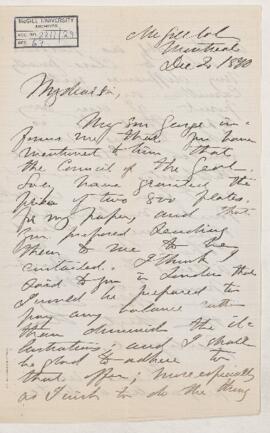 McGILL UNIVERSITY
ARCHIVES
ACC. NO.
REF.
McGill Col
Montreal
Dec 2, 1890
My dear Sir,
My son George in-
forms me that you have
mentioned to him that
the Council of the Geol.
Soc. have granted the
price of two 800 plates
for my paper, and that
you proposed sending
them to me to be
curtailed. I think I
said to you in London that
I would be prepared to
pay any balance rather
than diminish the il-
lustrations; and I shall
be glad to adhere to
that offer; more especially
as I wish to do the thing